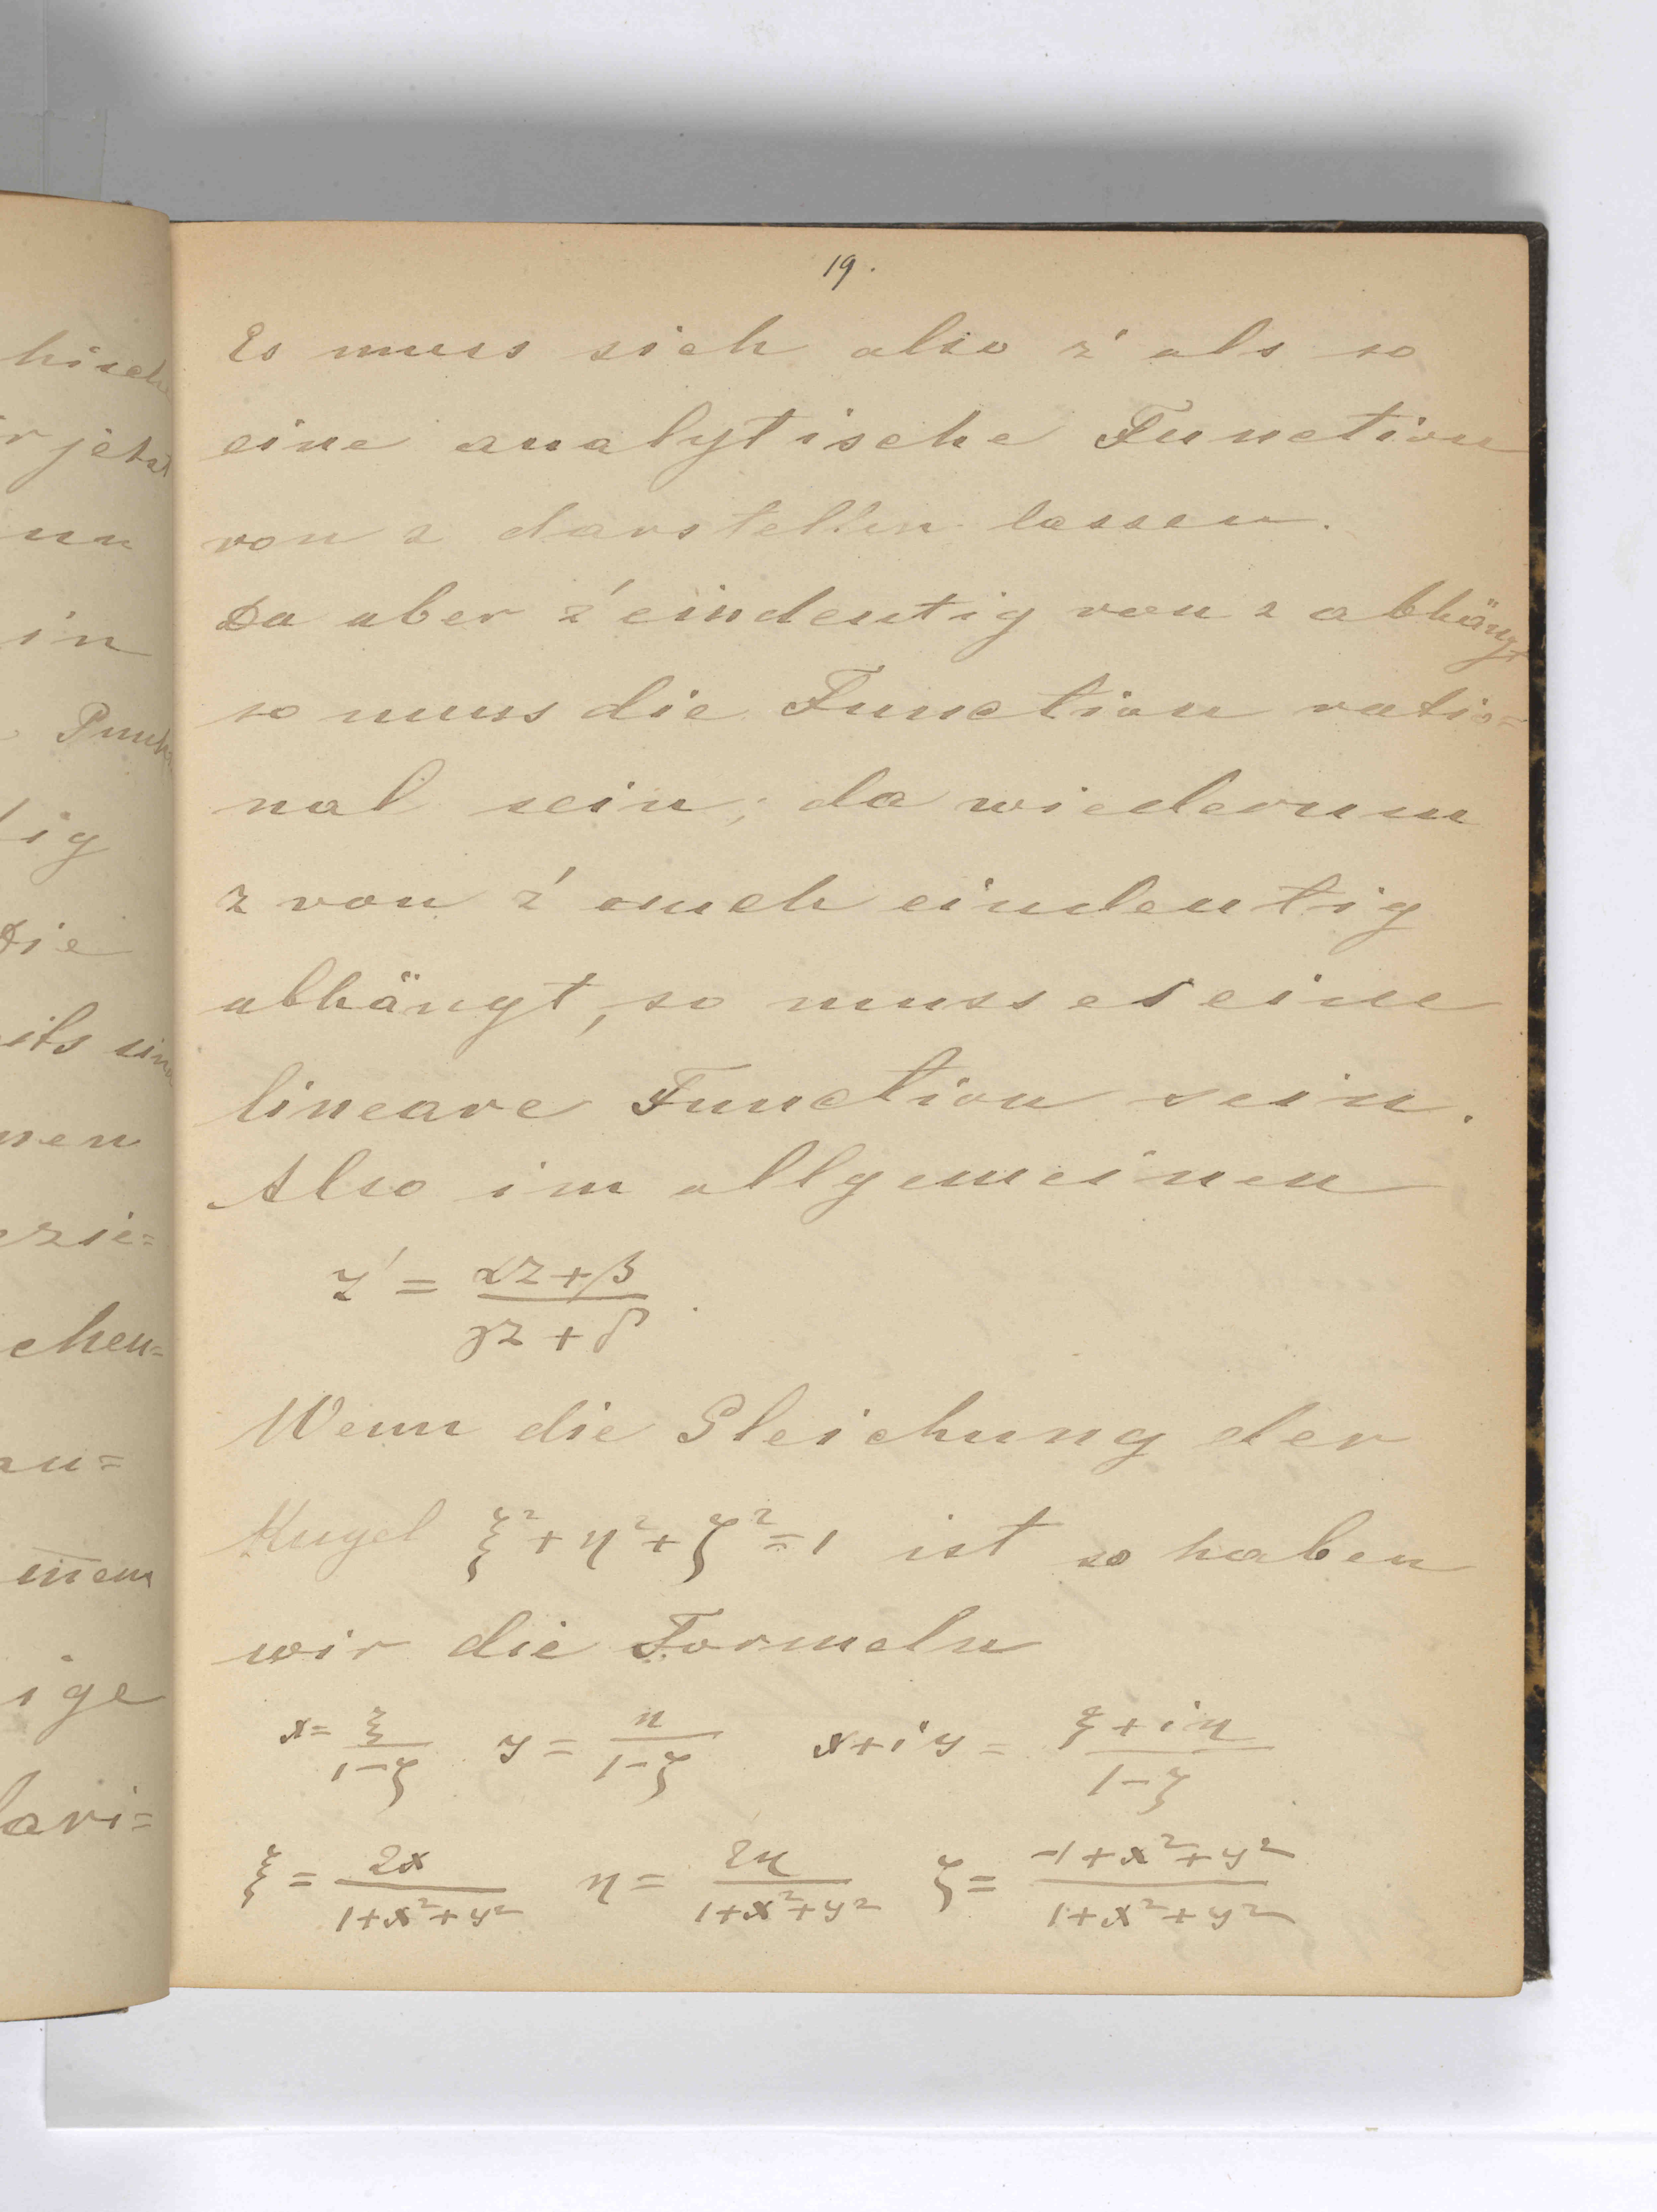 19.
Es muss sich also z' als so
eine analytische Function
von z darstellen lassen.
Da aber z' eindeutig von z abhängt
so muss die Function ratio=
nal sein; da wiederum
z von z' auch eindeutig
abhängt, so muss es eine
lineare Function sein.
Also im allgemeinen
z' = (αz+β)/(γz+δ).
Wenn die Gleichung der
Kugel ξ²+η²+ζ²=1 ist so haben
wir die Formeln
x = ξ/(1-ζ) y = η/(1-ζ) x+iy = (ξ+iη)/(1-ζ)
ξ = 2x/(1+x²+y²) η = 2y/(1+x²+y²) ζ = (-1+x²+y²)/(1+x²+y²)